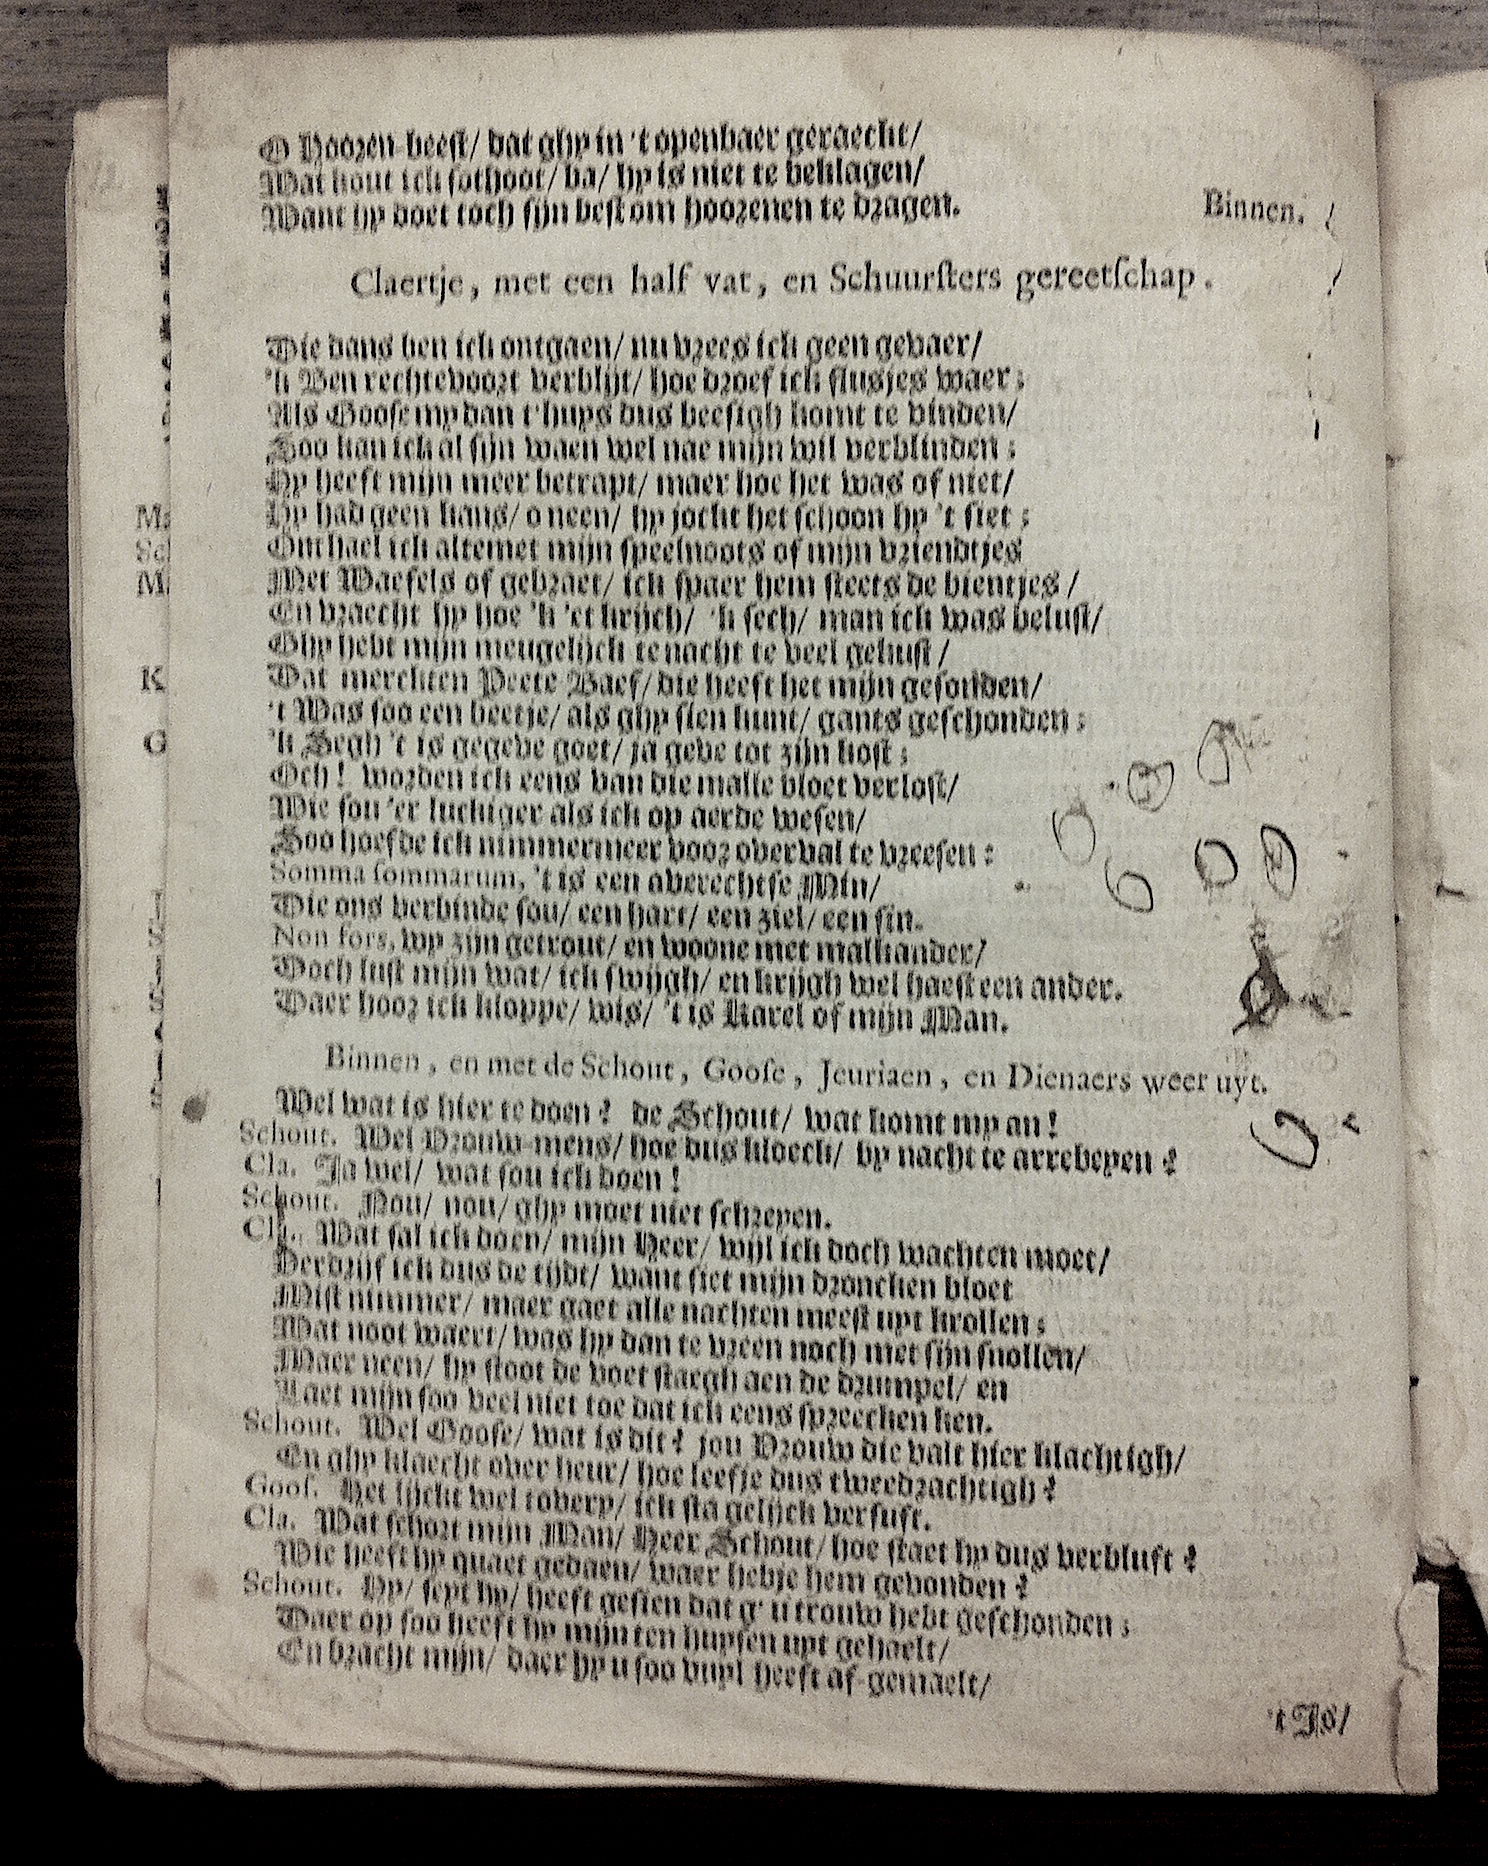 O Hooren-beest/ dat ghy in 't openbaer geraecht/
Wat hout ick sothoot/ ba/ hy is niet te beklagen/
Want hy doet toch sijn best om hoorenen te dragen. Binnen.
Claertje, met een half vat, en Schuursters gereetschap.
Die dans ben ick ontgaen/ nu vrees ick geen gevaer/
'k Ben rechtevoort verblijt/ hoe droef ick flusjes waer;
Als Goose my dan t'huys dus beesigh komt te vinden/
Soo kan ick al sijn waen wel nae mijn wil verblinden:
Hy heeft mijn meer betrapt/ maer hoe het was of niet/
Hy had geen kans/ o neen/ hy jockt het schoon hy 't siet;
Onthael ick altemet mijn speelnoots of mijn vriendtjes
Met Waefels of gebraet/ ick spaer hem steets de bientjes/
En vraecht hy hoe 'k 'et krijch/ 'k sech/ man ick was belust/
Ghy hebt mijn meugelijck te nacht te veel gekust/
Dat merckten Peete Baef/ die heeft het mijn gesonden/
't Was soo een beetje/ als ghy sien kunt/ gants geschonden;
'k Segh 't is gegeve goet/ ja geve tot zijn kost;
Och! worden ick eens van die malle bloet verlost/
Wie sou 'er luckiger als ick op aerde wesen/
Soo hoefde ick nimmermeer voor overval te vreesen:
Somma sommarum, 't is een averechtse Min/
Die ons verbinde sou/ een hart/ een ziel/ een sin.
Non fors, wy zijn getrout/ en woone met malkander/
Doch lust mijn wat/ ick swijgh/ en krijgh wel haest een ander.
Daer hoor ick kloppe/ wis/ 't is Karel of mijn Man.
Binnen, en met de Schout, Goose, Jeuriaen, en Dienaers weer uyt.
Wel wat is hier te doen? de Schout/ wat komt my an!
Schout. Wel Vrouw-mens/ hoe dus kloeck/ by nacht te arrebeyen?
Cla. Ja wel/ wat sou ick doen!
Schout. Nou/ nou/ ghy moet niet schreyen.
Cla. Wat sal ick doen/ mijn Heer/ wijl ick doch wachten moet/
Verdrijf ick dus de tijdt/ want siet mijn droncken bloet
Mist nimmer/ maer gaet alle nachten meest uyt krollen;
Wat noot waert/ was hy dan te vreen noch met sijn snollen/
Maer neen/ hy stoot de voet staegh aen de drumpel/ en
Laet mijn soo veel niet toe dat ick eens spreecken ken.
Schout. Wel Goose/ wat is dit? jou Vrouw die valt hier klachtigh/
En ghy klaecht over heur/ hoe leefje dus tweedrachtigh?
Goos. Het lijckt wel tovery/ ick sta gelijck versuft.
Cla. Wat schort mijn Man/ Heer Schout/ hoe staet hy dus verbluft?
Wie heeft hy quaet gedaen/ waer hebje hem gevonden?
Schout. Hy/ seyt hy/ heeft gesien dat g' u trouw hebt geschonden;
Daer op soo heeft hy mijn ten huysen uyt gehaelt/
En bracht mijn/ daer hy u soo vuyl heeft af-gemaelt/
't Is/